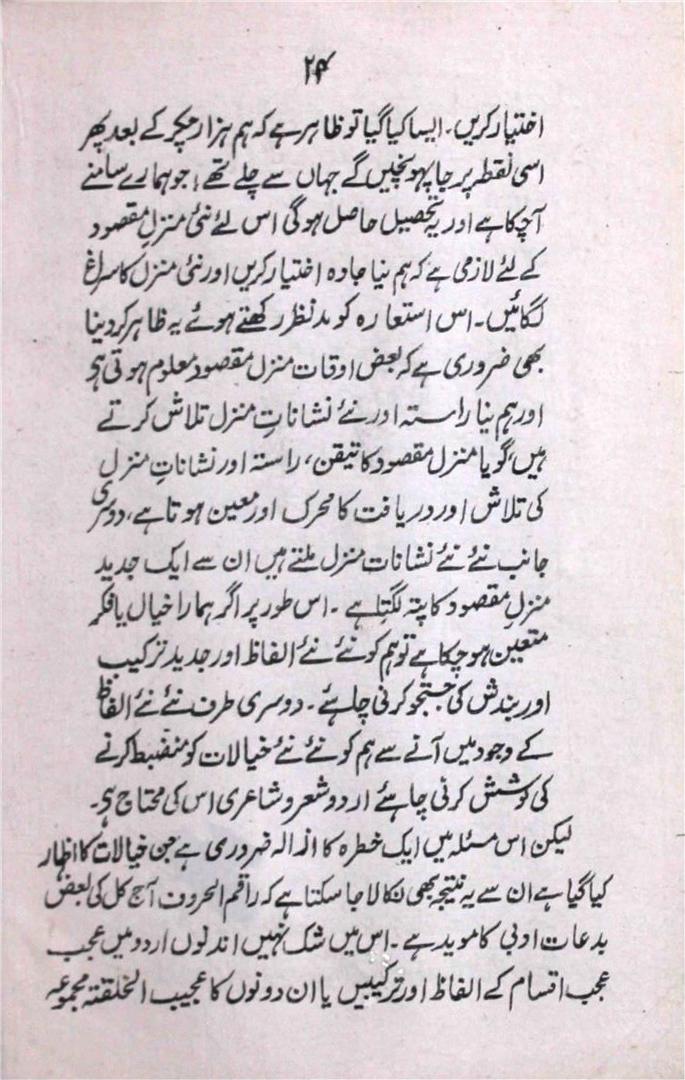 ۲۴
اختیار کریں۔ ایسا کیا گیا تو ظاہر ہے کہ ہم ہزار چکر کے بعد پھر
اسی نقطہ پر جا پہونچیں گے جہاں سے چلے تھے! جو ہمارے سامنے
آچکا ہے اور یہ تحصیل حاصل ہوگی اس لئے نئی منزلِ مقصود
کے لئے لازمی ہے کہ ہم نیا جادہ اختیار کریں اور نئی منزل کا سراغ
لگائیں۔ اس استعارہ کو مدنظر رکھتے ہوئے یہ ظاہر کردینا
بھی ضروری ہے کہ بعض اوقات منزل مقصود معلوم ہوتی ہے
اور ہم نیا راستہ اور نئے نشاناتِ منزل تلاش کرتے
ہیں، گویا منزل مقصود کا تیقن، راستہ اور نشاناتِ منزل
کی تلاش اور دریافت کا محرک اور معین ہوتا ہے، دوسری
جانب نئے نئے نشانات منزل ملتے ہیں ان سے ایک جدید
منزلِ مقصود کا پتہ لگتا ہے۔ اس طور پر اگر ہمارا خیال یا فکر
متعین ہو چکا ہے تو ہم کو نئے نئے الفاظ اور جدید ترکیب
اور بندش کی جستجو کرنی چاہئے۔ دوسری طرف نئے نئے الفاظ
کے وجود میں آنے سے ہم کو نئے نئے خیالات کو منضبط کرنے
کی کوشش کرنی چاہئے اردو شعر و شاعری اس کی محتاج ہے۔
لیکن اس مسئلہ میں ایک خطرہ کا ازالہ ضروری ہے جن خیالات کا اظہار
کیا گیا ہے ان سے یہ نتیجہ بھی نکالا جا سکتا ہے کہ راقم الحروف آج کل کی بعض
بدعات ادبی کا موید ہے۔ اس میں شک نہیں اندنوں اردو میں عجب
عجب اقسام کے الفاظ اور ترکیبیں یا ان دونوں کا عجیب الخلقتہ مجموعہ